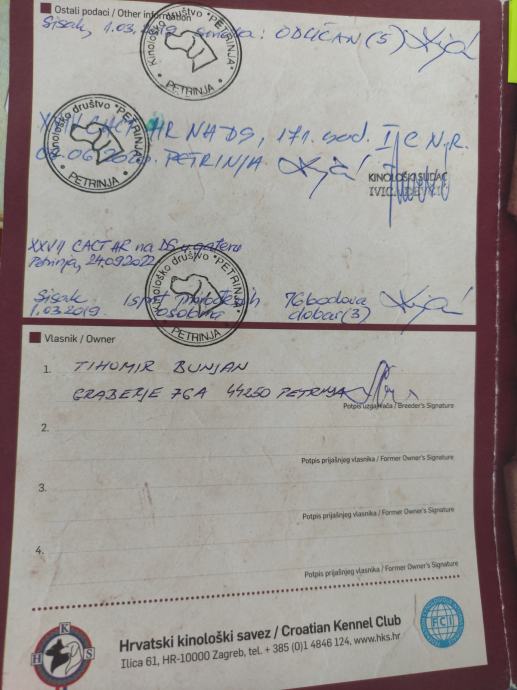 Ostali podaci / Other information
Sisak, 1.03.2019 : ODLIČAN (5)
Kinološko društvo "PETRINJA" • PETRINJA •
CACT HR NA DS, 171. bod. I/C N.R.
PETRINJA
Kinološko društvo "PETRINJA" • PETRINJA •
KINOLOŠKI SUDAC
XXVII CACT HR na DS u gateru
Petrinja, 24.09.2022
Kinološko društvo "PETRINJA" • PETRINJA •
Sisak Ispit 76 bodova
1.03.2019. osobina dobar (3)
Vlasnik / Owner
1. TIHOMIR BUNJAN
GRABERJE 76A 44250 PETRINJA
Potpis uzgajivača / Breeder's Signature
2.
Potpis prijašnjeg vlasnika / Former Owner's Signature
3.
Potpis prijašnjeg vlasnika / Former Owner's Signature
4.
Potpis prijašnjeg vlasnika / Former Owner's Signature
H K S
Hrvatski kinološki savez / Croatian Kennel Club
Ilica 61, HR-10000 Zagreb, tel. + 385 (0)1 4846 124, www.hks.hr
FCI